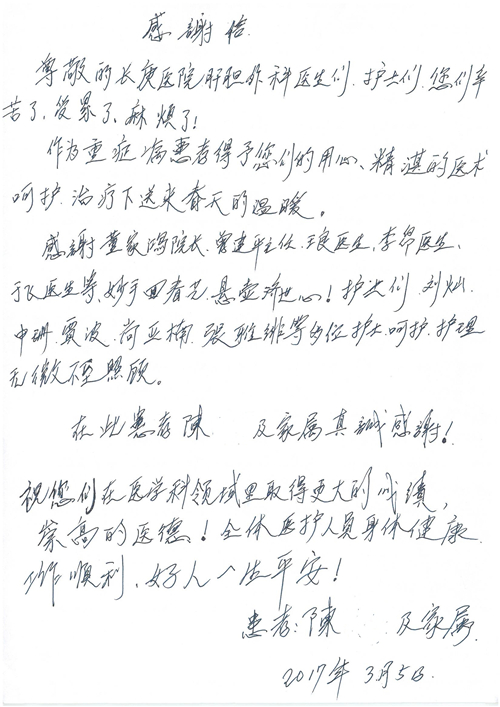 感謝信
尊敬的长庚医院肝胆外科医生们、护士们、您们辛
苦了、受累了、麻煩了!
作为重症病患者得予您们的用心、精湛的医术
呵护、治疗下送来春天的温暖。
感謝董家鸿院长、曾建平主任、医生、李昂医生、
医生等、妙手回春艺、悬壶济世心!护士们、刘灿、
申珊、贾波、尚亚楠、张雅琳等多位护士、呵护、护理
无微不至照顾。
在此患者陳 及家属真誠感謝!
祝您们在医学科领域里取得更大的成績,
崇高的医德!全体医护人员身体健康
工作順利、好人一生平安!
患者:陳 及家属
2017年3月5日